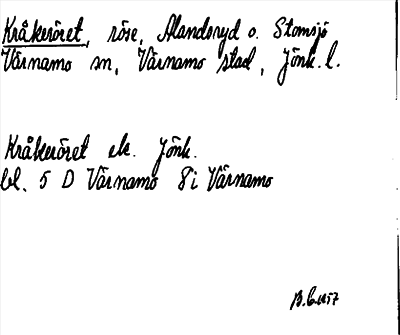 Kråkeröret, röse, Alandsryd o. Stomsjö
Värnamo sn, Värnamo stad, Jönk. l.
Kråkeröret ek. Jönk.
bl. 5 D Värnamo 8i Värnamo